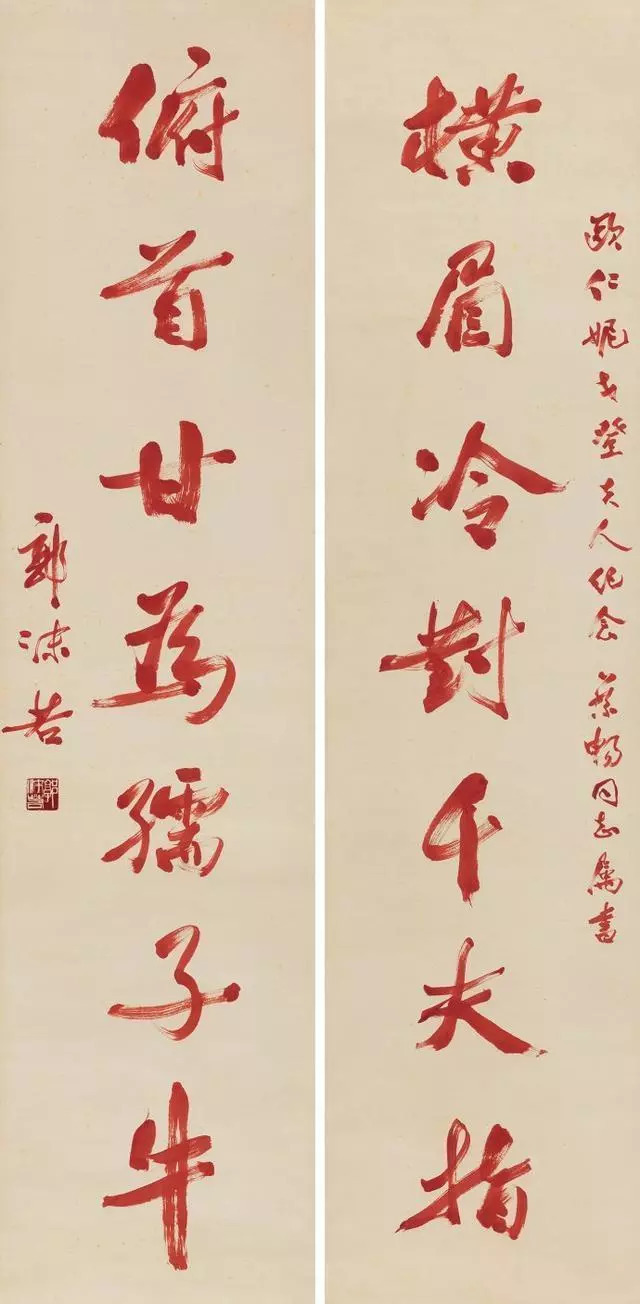 歐仁妮戈登夫人紀念 蔡暢同志屬書
橫眉冷對千夫指
俯首甘為孺子牛
郭沫若
郭沫若